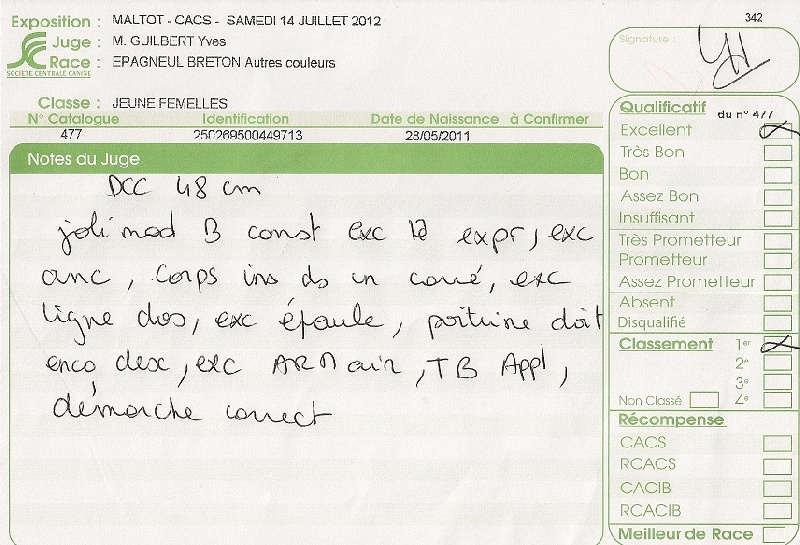 Exposition : MALTOT - CACS - SAMEDI 14 JUILLET 2012
Juge : M. GUILBERT Yves
Race : EPAGNEUL BRETON Autres couleurs
SOCIÉTÉ CENTRALE CANINE
Classe : JEUNE FEMELLES
N° Catalogue Identification Date de Naissance à Confirmer
477 250269500449713 28/05/2011
Notes du Juge
DCC 48 cm
joli mod B const exc td expr, exc
anc, corps ins ds un carré, exc
ligne dos, exc épaule, poitrine doit
enco desc, exc ARR, TB Appl,
démarche correct
342
Signature :
Qualificatif du n° 477
Excellent
Très Bon
Bon
Assez Bon
Insuffisant
Très Prometteur
Prometteur
Assez Prometteur
Absent
Disqualifié
Classement 1er
2e
3e
Non Classé 4e
Récompense
CACS
RCACS
CACIB
RCACIB
Meilleur de Race